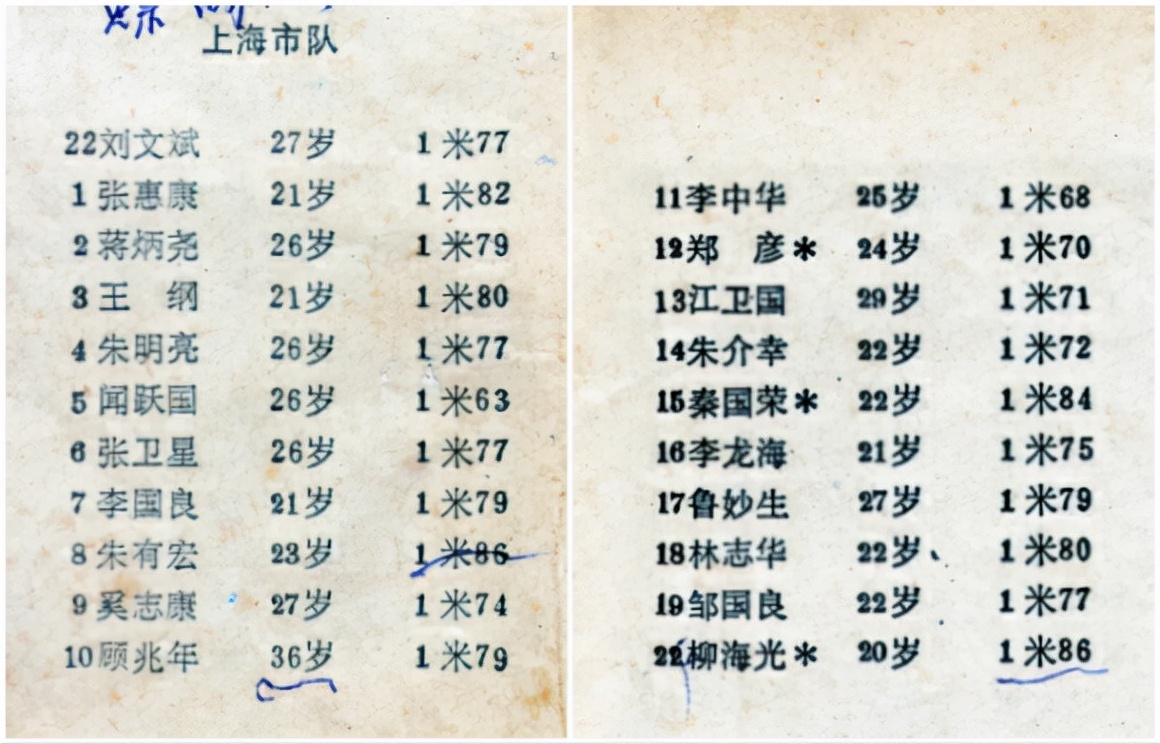 上海市队
22刘文斌 27岁 1米77
1张惠康 21岁 1米82
2蒋炳尧 26岁 1米79
3王 纲 21岁 1米80
4朱明亮 26岁 1米77
5闻跃国 26岁 1米63
6张卫星 26岁 1米77
7李国良 21岁 1米79
8朱有宏 23岁 1米86
9奚志康 27岁 1米74
10顾兆年 36岁 1米79
11李中华 25岁 1米68
12郑 彦* 24岁 1米70
13江卫国 29岁 1米71
14朱介幸 22岁 1米72
15秦国荣* 22岁 1米84
16李龙海 21岁 1米75
17鲁妙生 27岁 1米79
18林志华 22岁 1米80
19邹国良 22岁 1米77
22柳海光* 20岁 1米86